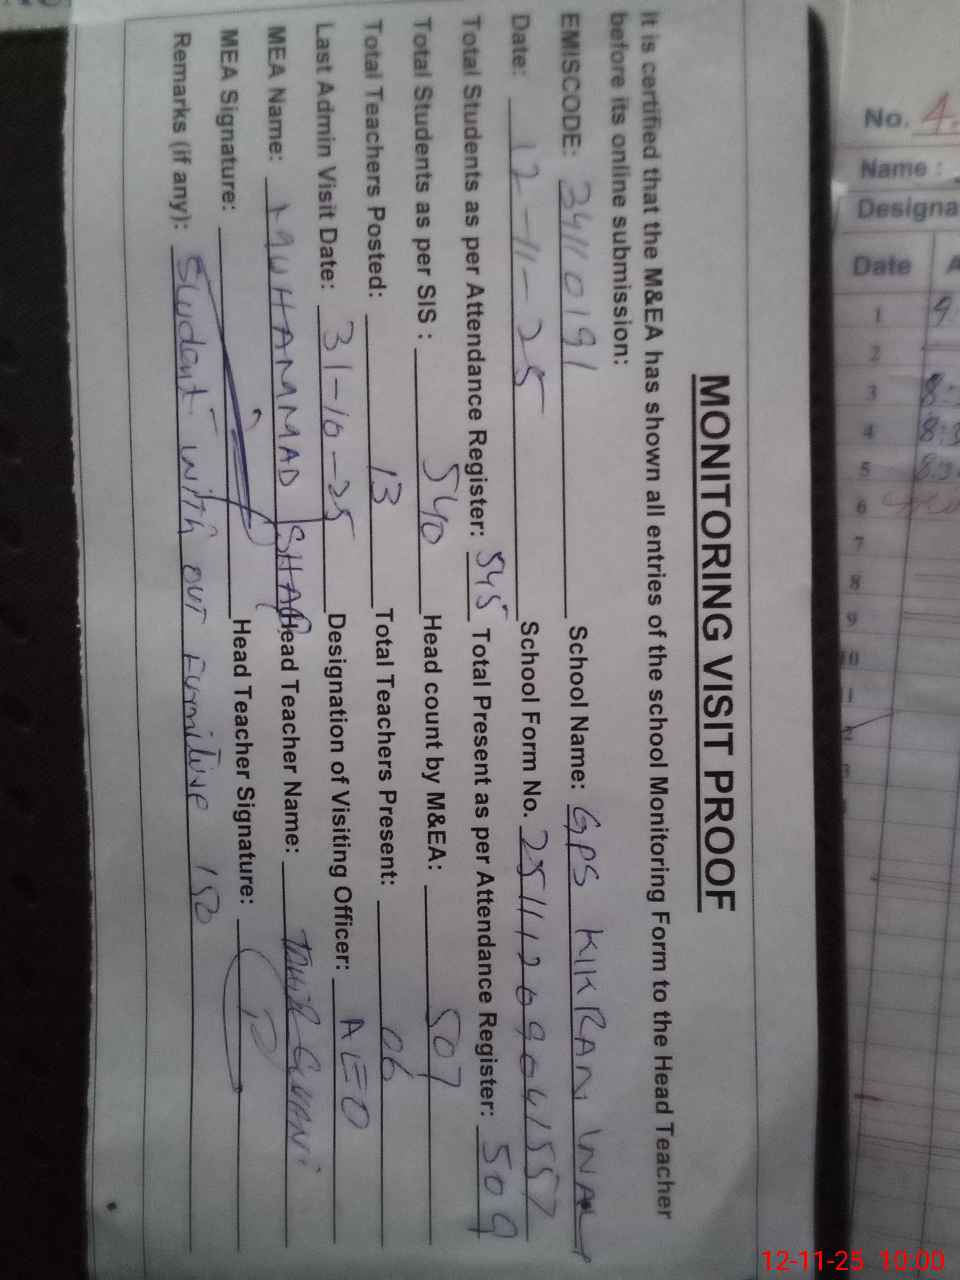 MONITORING VISIT PROOF
It is certified that the M&EA has shown all entries of the school Monitoring Form to the Head Teacher
before its online submission:
EMISCODE: 34110191 School Name: GPS KIKRAN WAL
Date: 12-11-25 School Form No. 2511126904155
Total Students as per Attendance Register: 545 Total Present as per Attendance Register: 509
Total Students as per SIS : 540 Head count by M&EA: 507
Total Teachers Posted: 13 Total Teachers Present: 06
Last Admin Visit Date: 31-10-25 Designation of Visiting Officer: AEO
MEA Name: MUHAMMAD Head Teacher Name:
MEA Signature: Head Teacher Signature:
Remarks (if any): Student with out furniture 150
No. 4
Name :
Designa
Date A
1 9
2
3 8:
4 8:3
5 8:3
6
7
8
9
10
12-11-25 10:00